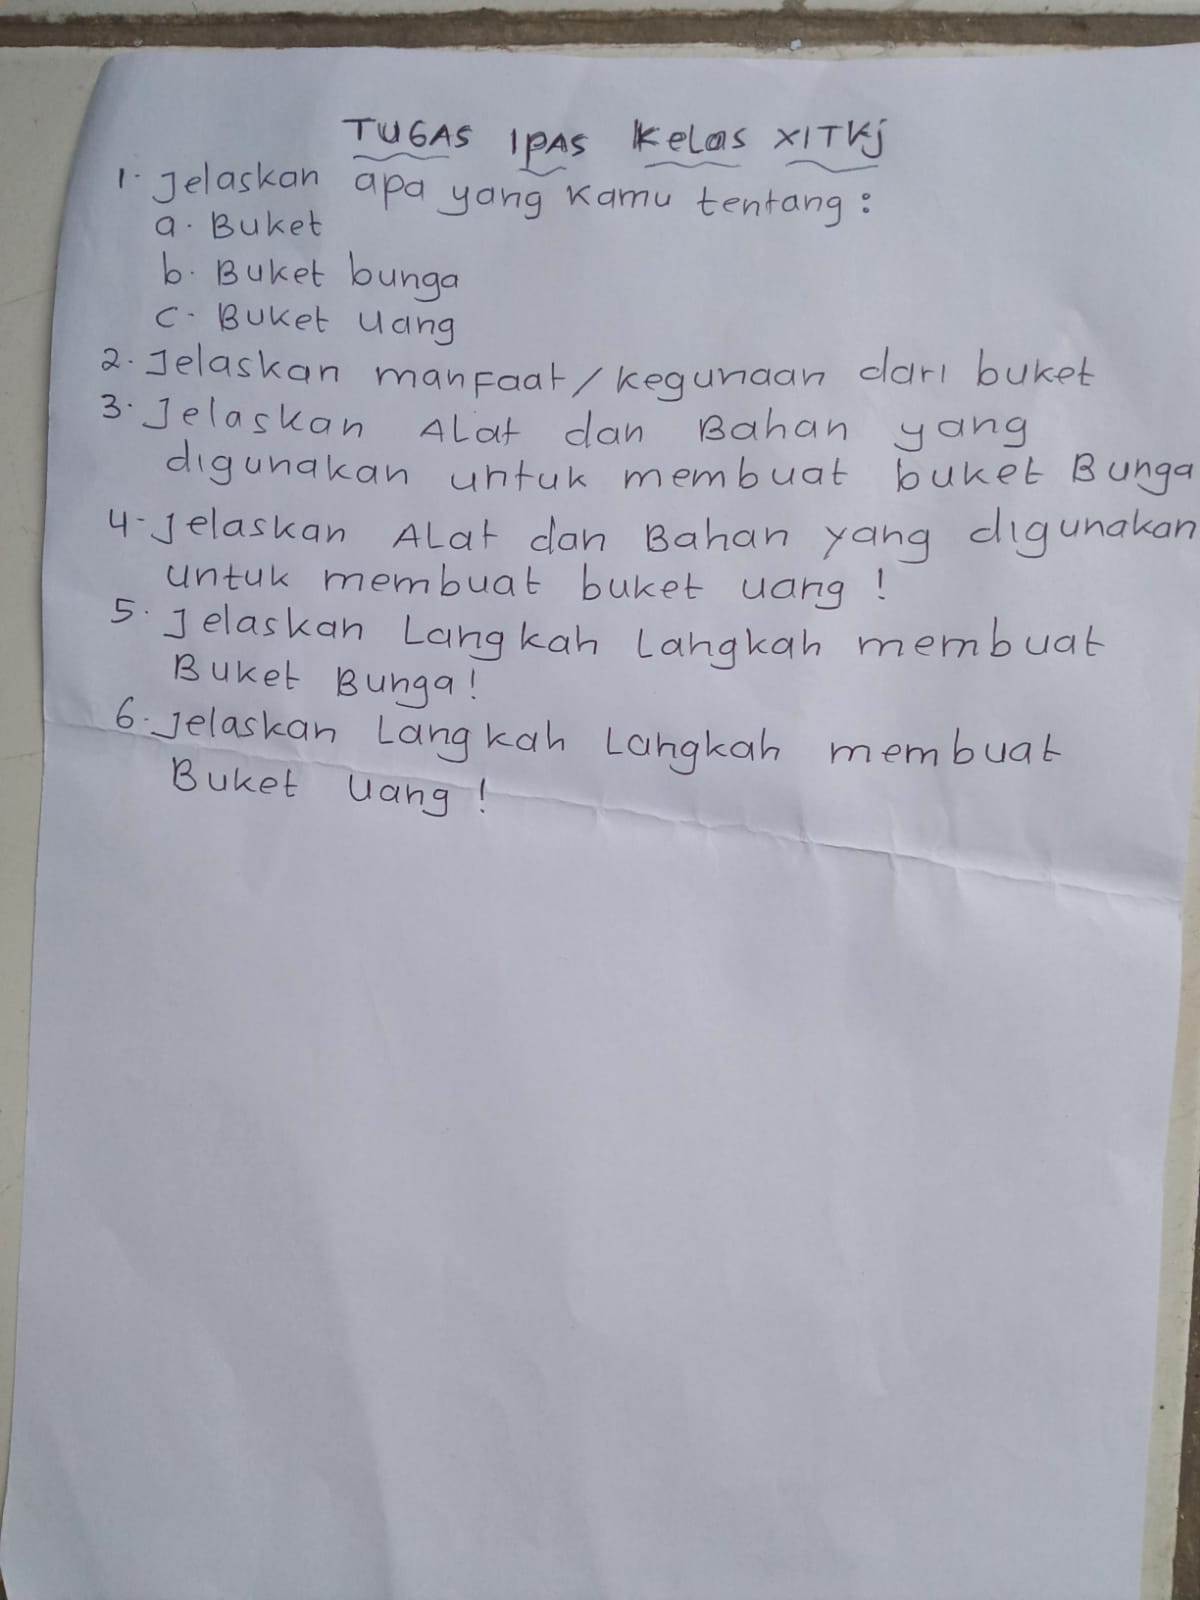 TUGAS IPAS Kelas XI TKj
1. Jelaskan apa yang kamu tentang :
a. Buket
b. Buket bunga
c. Buket Uang
2. Jelaskan manfaat/kegunaan dari buket
3. Jelaskan ALat dan Bahan yang
digunakan untuk membuat buket Bunga
4. Jelaskan ALat dan Bahan yang digunakan
untuk membuat buket uang !
5. Jelaskan Langkah Langkah membuat
Buket Bunga !
6. Jelaskan Langkah Langkah membuat
Buket Uang !